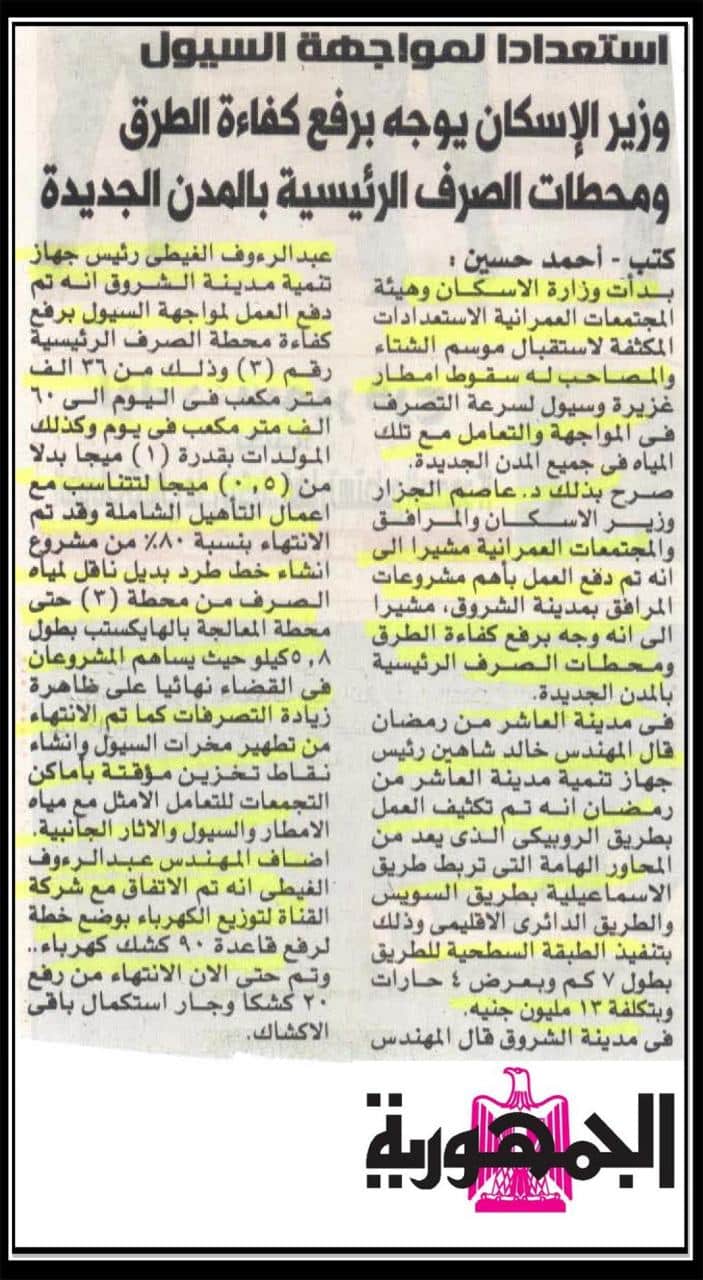 استعدادا لمواجهة السيول
وزير الإسكان يوجه برفع كفاءة الطرق
ومحطات الصرف الرئيسية بالمدن الجديدة
كتب - أحمد حسين :
بدأت وزارة الاسكان وهيئة
المجتمعات العمرانية الاستعدادات
المكثفة لاستقبال موسم الشتاء
والمصاحب له سقوط امطار
غزيرة وسيول لسرعة التصرف
فى المواجهة والتعامل مع تلك
المياه فى جميع المدن الجديدة.
صرح بذلك د. عاصم الجزار
وزير الاسكان والمرافق
والمجتمعات العمرانية مشيرا الى
انه تم دفع العمل بأهم مشروعات
المرافق بمدينة الشروق، مشيرا
الى انه وجه برفع كفاءة الطرق
ومحطات الصرف الرئيسية
بالمدن الجديدة.
فى مدينة العاشر من رمضان
قال المهندس خالد شاهين رئيس
جهاز تنمية مدينة العاشر من
رمضان انه تم تكثيف العمل
بطريق الروبيكى الذى يعد من
المحاور الهامة التى تربط طريق
الاسماعيلية بطريق السويس
والطريق الدائرى الاقليمى وذلك
بتنفيذ الطبقة السطحية للطريق
بطول ٧ كم وبعرض ٤ حارات
وبتكلفة ١٣ مليون جنيه.
فى مدينة الشروق قال المهندس
عبدالرءوف الغيطى رئيس جهاز
تنمية مدينة الشروق انه تم
دفع العمل لمواجهة السيول برفع
كفاءة محطة الصرف الرئيسية
رقم (٣) وذلك من ٣٦ الف
متر مكعب فى اليوم الى ٦٠
الف متر مكعب فى يوم وكذلك
المولدات بقدرة (١) ميجا بدلا
من (٠,٥) ميجا لتتناسب مع
اعمال التأهيل الشاملة وقد تم
الانتهاء بنسبة ٨٠٪ من مشروع
انشاء خط طرد بديل ناقل لمياه
الصرف من محطة (٣) حتى
محطة المعالجة بالهايكستب بطول
٥,٨ كيلو حيث يساهم المشروعان
فى القضاء نهائيا على ظاهرة
زيادة التصرفات كما تم الانتهاء
من تطهير مخرات السيول وانشاء
نقاط تخزين مؤقتة بأماكن
التجمعات للتعامل الامثل مع مياه
الامطار والسيول والاثار الجانبية.
اضاف المهندس عبدالرءوف
الغيطى انه تم الاتفاق مع شركة
القناة لتوزيع الكهرباء بوضع خطة
لرفع قاعدة ٩٠ كشك كهرباء..
وتم حتى الان الانتهاء من رفع
٢٠ كشكا وجار استكمال باقى
الاكشاك.
الجمهورية